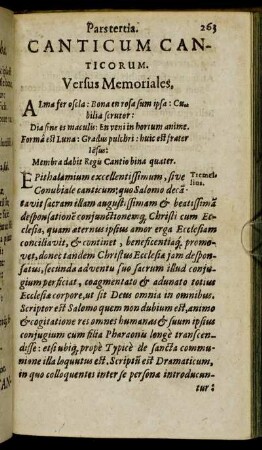 Pars tertia. 263
CANTICUM CAN-
TICORUM.
Versus Memoriales,
ALma fer oscla: Bona en rosa sum ipsa: Cu-
bilia scrutor:
Dia sine es maculis: En veni in hortum anime.
Forma est Luna: Gradus pulchri: huic est frater
Iesus:
Membra dabit Regũ Cantio bina quater.
EPithalamium excellentissimum, sive
Conubiale canticum; quo Salomo decã-
tavit sacram illam augustissimam & beatissimã
desponsationẽ conjunctionemq́, Christi cum Ec-
clesia, quam æternus ipsius amor erga Ecclesiam
conciliavit, & continet, beneficentiaq́; promo-
vet, donec tandem Christus Ecclesia jam despon-
satus, secunda adventu suo sacrum illud conju-
gium perficiat, coagmentato & adunato totius
Ecclesiæ corpore, ut sit Deus omnia in omnibus.
Scriptor est Salomo quem non dubium est, animo
& cogitatione res omnes humanas & suum ipsius
conjugium cum filia Pharaonis longè transcen-
disse: etsi ubiq́, propè Typicè de sancta commu-
nione illa loquutus est. Scriptũ est Dramaticum,
in quo colloquentes inter se personæ introducun-
tur:
Tremel-
lius.